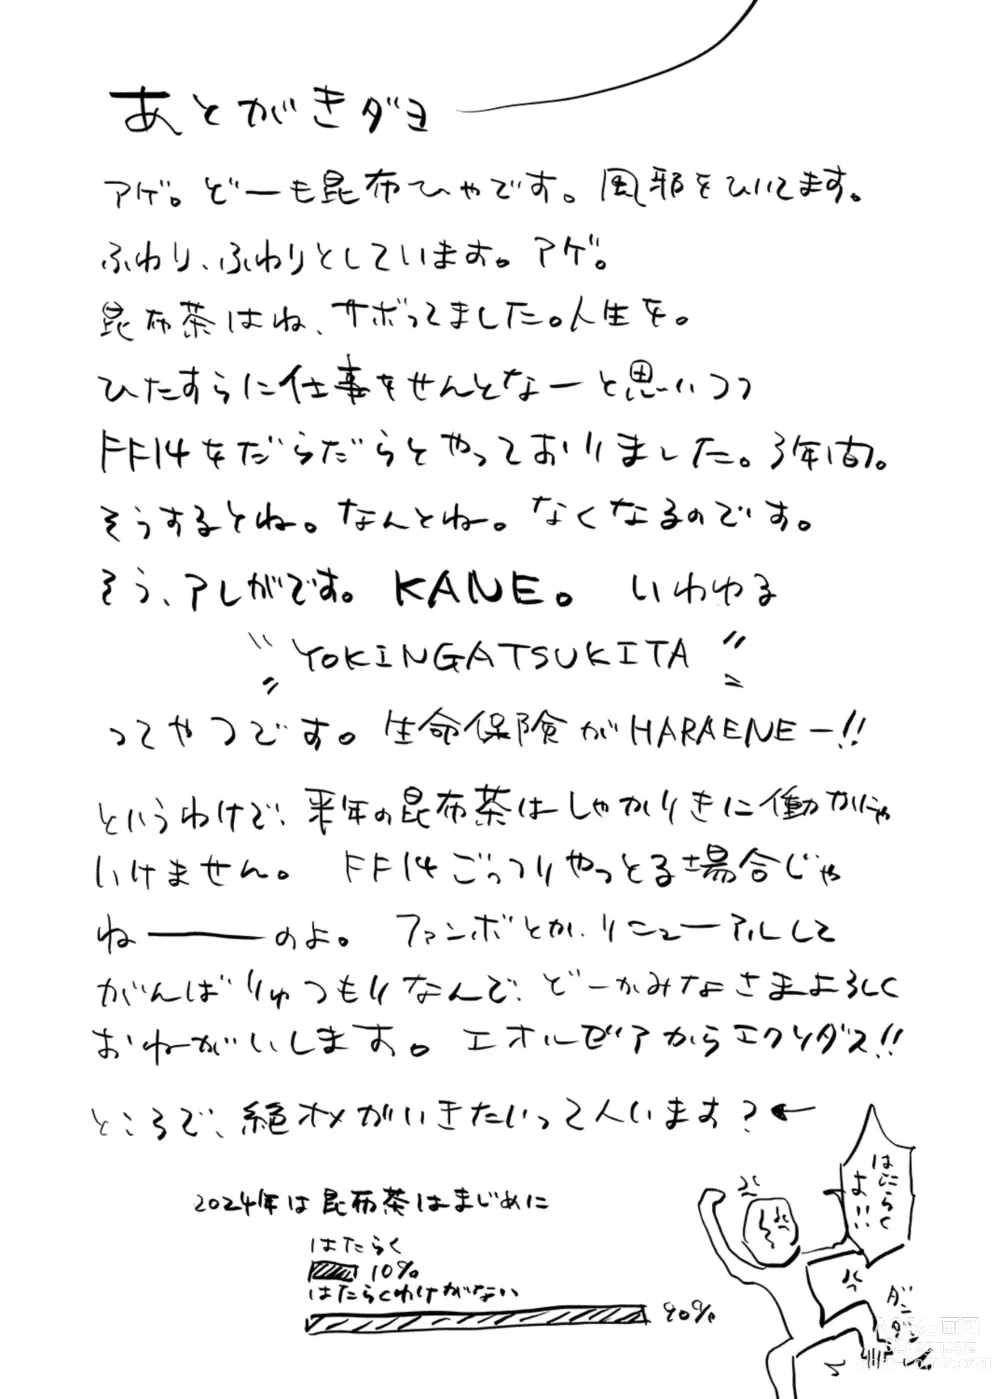 あとがきダヨ
アゲ。どーも昆布ひやです。風邪をひいてます。
ふわり、ふわりとしています。アゲ。
昆布茶はね、サボってました。人生を。
ひたすらに仕事をせんとなーと思いつつ
FF14をだらだらとやっておりました。3年間。
そうするとね。なんとね。なくなるのです。
そう、アレがです。KANE。いわゆる
YOKINGATSUKITA
ってやつです。生命保険がHARAENEー!!
というわけで、来年の昆布茶はしゃかりきに働かにゃ
いけません。FF14ごっつりやっとる場合じゃ
ねーーーのよ。ファンボとか、リニューアルして
がんばりゅつもりなんで、どーかみなさまよろしく
おねがいします。エオルゼアからエクソダス!!
ところで、絶オメガいきたいって人います?←
はたらくよ!!
2024年は昆布茶はまじめに
はたらく
10%
はたらくわけがない
90%
ダンダン